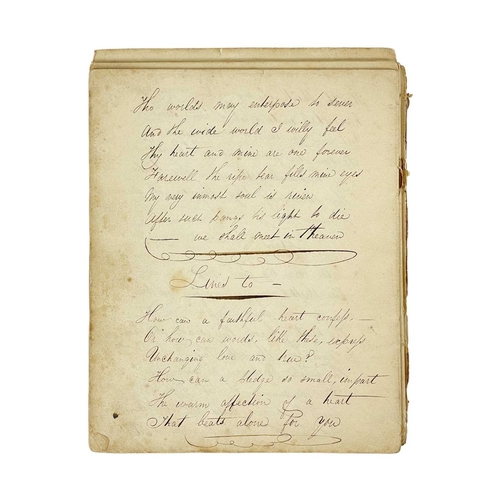 Tho worlds may enterpose to sever
And the wide world I willy feel
Thy heart and mine are one forever
Farewell the ripe tear fills mine eyes
My very inmost soul is riven
After such pangs tis right to die
— we shall meet in Heaven
Lines to —
How can a faithful heart confess, —
Or how can words, like these, express
Unchanging love and true?
How can a pledge so small, impart
The warm affection of a heart
That beats alone for you